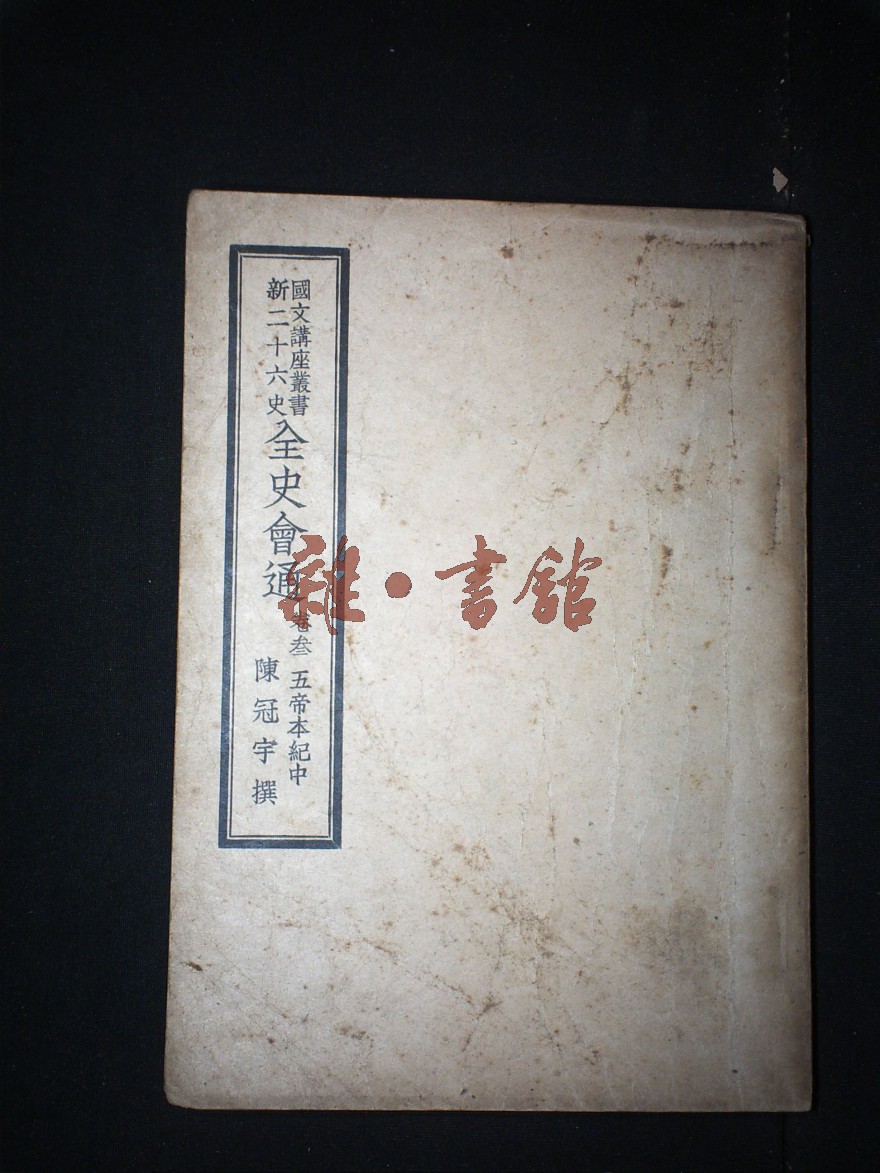 國文講座叢書
新二十六史
全史會通
卷叁 五帝本紀中
陳冠宇撰
雜·書館